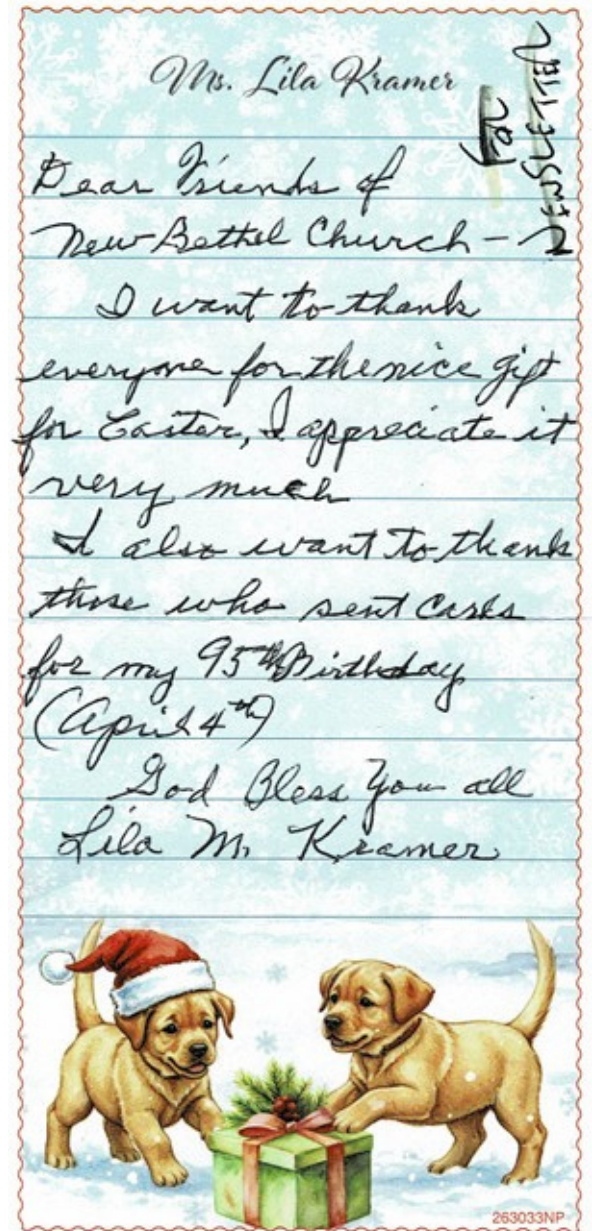 Ms. Lila Kramer
For
NEWSLETTER
Dear Friends of
New Bethel Church -
I want to thank
everyone for the nice gift
for Easter, I appreciate it
very much
I also want to thank
those who sent cards
for my 95th Birthday
(April 4th)
God Bless You all
Lila M. Kramer
263033NP